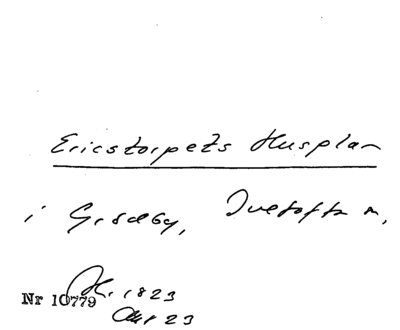 Ericstorpets Husplan
i Grödby, Tvetofta m,
Nr 10779
1823
23